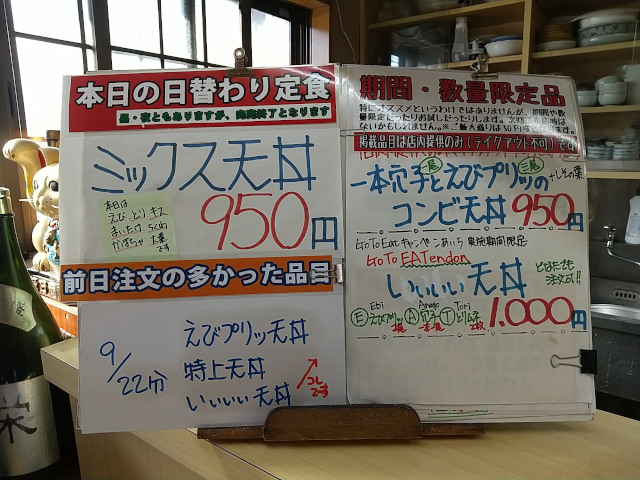 本日の日替わり定食
昼・夜ともありますが、売切終了となります
ミックス天丼
本日は
えび・とり キス
まいたけ ちくわ
かぼちゃ 大葉
です
950円
前日注文の多かった品目
9/22分
えびプリッ天丼
特上天丼
いいいい天丼
コレ
です
期間・数量限定品
特にオススメというわけではありませんが、期間や数
量限定だったりお試しだったりします。次回の
ないかもしれません。※ご飯大盛りは50円
掲載品目は店内提供のみ(テイクアウト不可)です
一本穴子とえびプリッの+しその葉
二尾
コンビ天丼 950円
GoToEatキャンペーンあいち 実施期間限定
GoTo EATendon
いいいい天丼
どなたでも
注文可!!
Ebi Anago Tori
E えびプリッ A 穴子 T とりムネ
二尾 一本 2枚
1,000円
栄